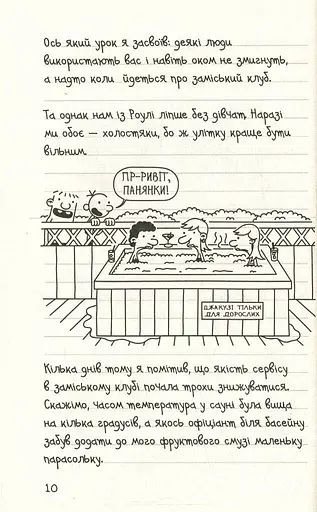 Ось який урок я засвоїв: деякі люди
використають вас і навіть оком не змигнуть,
а надто коли йдеться про заміський клуб.
Та однак нам із Роулі ліпше без дівчат. Наразі
ми обоє — холостяки, бо ж улітку краще бути
вільним.
ПР-РИВІТ,
ПАНЯНКИ!
ДЖАКУЗІ ТІЛЬКИ
ДЛЯ ДОРОСЛИХ
Кілька днів тому я помітив, що якість сервісу
в заміському клубі почала трохи знижуватися.
Скажімо, часом температура у сауні була вища
на кілька градусів, а якось офіціант біля басейну
забув додати до мого фруктового смузі маленьку
парасольку.
10